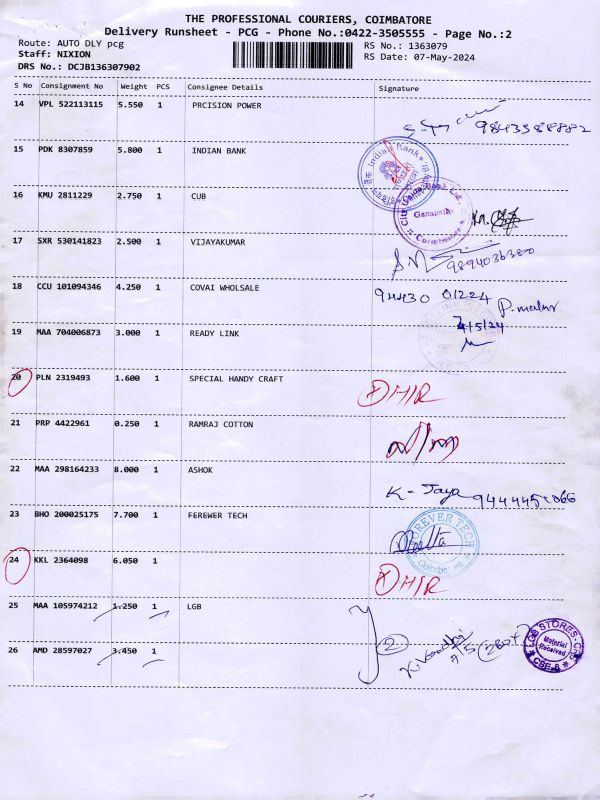 THE PROFESSIONAL COURIERS, COIMBATORE
Delivery Runsheet - PCG - Phone No.:0422-3505555 - Page No.:2
Route: AUTO DLY pcg RS No.: 1363079
Staff: NIXION RS Date: 07-May-2024
DRS No.: DCJB136307902
S No Consignment No Weight PCS Consignee Details Signature
14 VPL 522113115 5.550 1 PRCISION POWER
9843588882
15 PDK 8307859 5.800 1 INDIAN BANK
Indian Bank
16 KMU 2811229 2.750 1 CUB
City Union Bank Ltd.
Ganapathy
Coimbatore
17 SXR 530141823 2.500 1 VIJAYAKUMAR
9894036380
18 CCU 101094346 4.250 1 COVAI WHOLSALE
94430 01224 P. malar
19 MAA 704006873 3.000 1 READY LINK
7/5/24
20 PLN 2319493 1.600 1 SPECIAL HANDY CRAFT
21 PRP 4422961 0.250 1 RAMRAJ COTTON
22 MAA 298164233 8.000 1 ASHOK
K - Jaya
23 BHO 200025175 7.700 1 FEREWER TECH
FOREVER TECH
24 KKL 2364098 6.050 1
25 MAA 105974212 1.250 1 LGB
2
LGB STORES-CBE
Material
Received
CBE-6
26 AMD 28597027 3.450 1